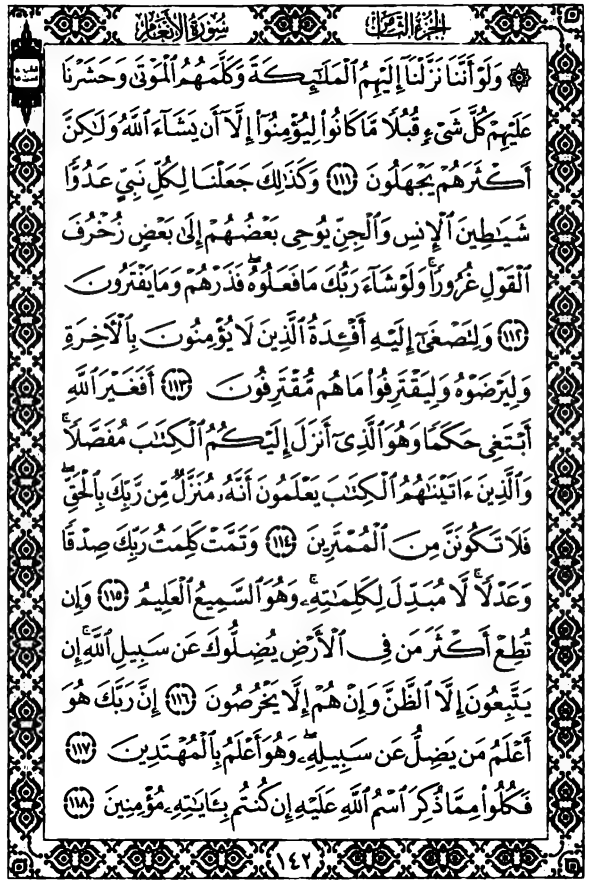 الجزء الثامن
سورة الأنعام
۞ وَلَوْ أَنَّنَا نَزَّلْنَآ إِلَيْهِمُ ٱلْمَلَٰٓئِكَةَ وَكَلَّمَهُمُ ٱلْمَوْتَىٰ وَحَشَرْنَا
عَلَيْهِمْ كُلَّ شَىْءٍ قُبُلًا مَّا كَانُوا۟ لِيُؤْمِنُوٓا۟ إِلَّآ أَن يَشَآءَ ٱللَّهُ وَلَٰكِنَّ
أَكْثَرَهُمْ يَجْهَلُونَ ١١١ وَكَذَٰلِكَ جَعَلْنَا لِكُلِّ نَبِىٍّ عَدُوًّا
شَيَٰطِينَ ٱلْإِنسِ وَٱلْجِنِّ يُوحِى بَعْضُهُمْ إِلَىٰ بَعْضٍ زُخْرُفَ
ٱلْقَوْلِ غُرُورًا ۚ وَلَوْ شَآءَ رَبُّكَ مَا فَعَلُوهُ ۖ فَذَرْهُمْ وَمَا يَفْتَرُونَ
١١٢ وَلِتَصْغَىٰٓ إِلَيْهِ أَفْـِٔدَةُ ٱلَّذِينَ لَا يُؤْمِنُونَ بِٱلْءَاخِرَةِ
وَلِيَرْضَوْهُ وَلِيَقْتَرِفُوا۟ مَا هُم مُّقْتَرِفُونَ ١١٣ أَفَغَيْرَ ٱللَّهِ
أَبْتَغِى حَكَمًا وَهُوَ ٱلَّذِىٓ أَنزَلَ إِلَيْكُمُ ٱلْكِتَٰبَ مُفَصَّلًا ۚ
وَٱلَّذِينَ ءَاتَيْنَٰهُمُ ٱلْكِتَٰبَ يَعْلَمُونَ أَنَّهُۥ مُنَزَّلٌ مِّن رَّبِّكَ بِٱلْحَقِّ ۖ
فَلَا تَكُونَنَّ مِنَ ٱلْمُمْتَرِينَ ١١٤ وَتَمَّتْ كَلِمَتُ رَبِّكَ صِدْقًا
وَعَدْلًا ۚ لَّا مُبَدِّلَ لِكَلِمَٰتِهِۦ ۚ وَهُوَ ٱلسَّمِيعُ ٱلْعَلِيمُ ١١٥ وَإِن
تُطِعْ أَكْثَرَ مَن فِى ٱلْأَرْضِ يُضِلُّوكَ عَن سَبِيلِ ٱللَّهِ ۚ إِن
يَتَّبِعُونَ إِلَّا ٱلظَّنَّ وَإِنْ هُمْ إِلَّا يَخْرُصُونَ ١١٦ إِنَّ رَبَّكَ هُوَ
أَعْلَمُ مَن يَضِلُّ عَن سَبِيلِهِۦ ۖ وَهُوَ أَعْلَمُ بِٱلْمُهْتَدِينَ ١١٧
فَكُلُوا۟ مِمَّا ذُكِرَ ٱسْمُ ٱللَّهِ عَلَيْهِ إِن كُنتُم بِـَٔايَٰتِهِۦ مُؤْمِنِينَ ١١٨
١٤٢